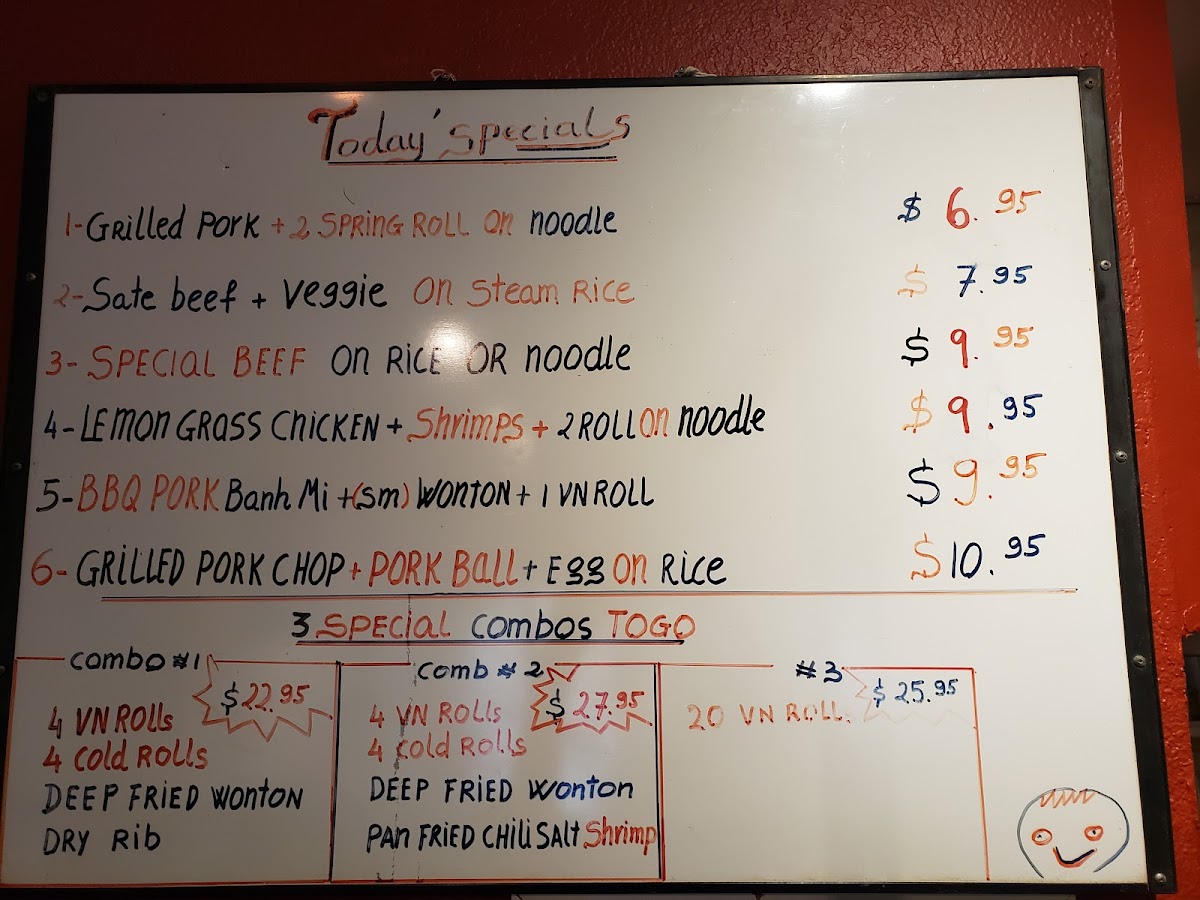 Today' specials
1- Grilled Pork + 2 SPRING ROLL on noodle $ 6.95
2- Sate beef + Veggie on Steam Rice $ 7.95
3- SPECIAL BEEF on RICE OR noodle $ 9.95
4- LEmon GRASS CHICKEN + Shrimps + 2 ROLL on noodle $ 9.95
5- BBQ PORK Banh Mi + (sm) WONTON + 1 VN ROLL $ 9.95
6- GRILLED PORK CHOP + PORK Ball + Egg on Rice $10.95
3 SPECIAL combos TOGO
combo #1
$22.95
4 VN Rolls
4 Cold Rolls
DEEP FRIED Wonton
DRY Rib
comb # 2
$ 27.95
4 VN Rolls
4 Cold Rolls
DEEP FRIED Wonton
PAN FRIED CHILI SALT Shrimp
#3
$ 25.95
20 VN ROLL.